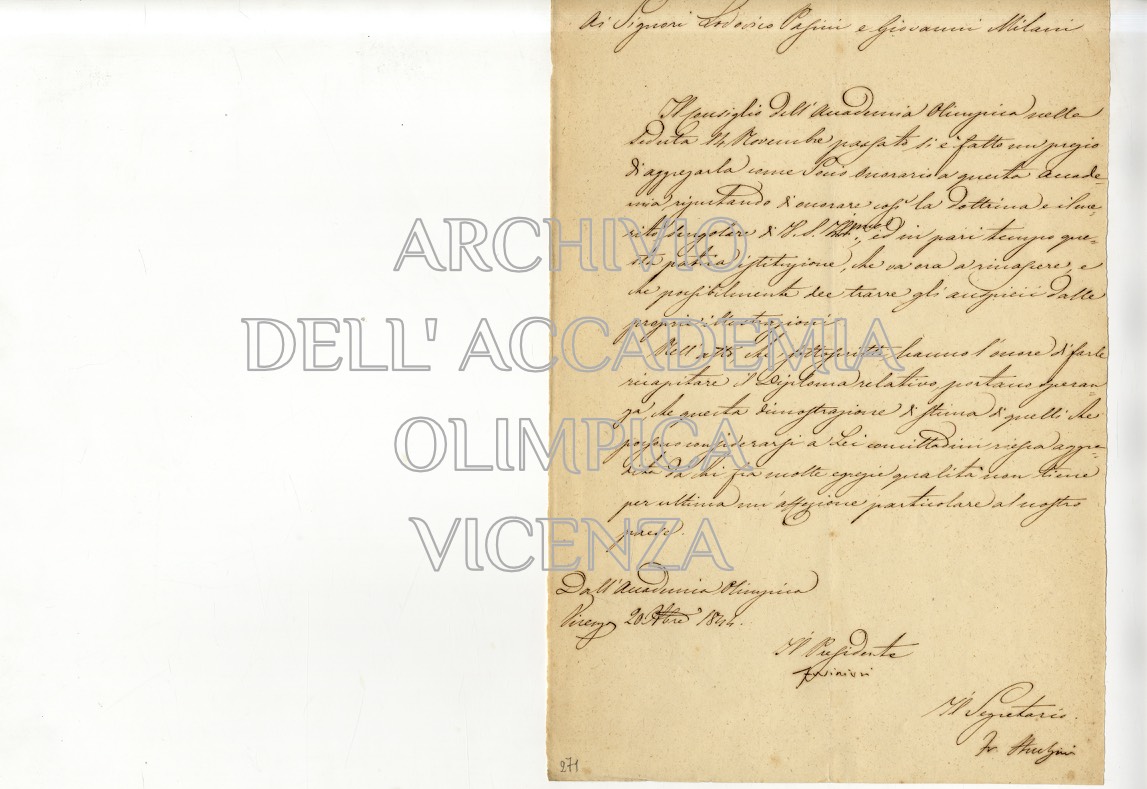 Ai Signori Lodovico Pasini e Giovanni Milani
Il Consiglio dell'Accademia Olimpica nella
seduta 14 Novembre passato si è fatto un pregio
di aggregarla come Socio Onorario a questa Accade-
mia riputando di onorare così la dottrina e il me-
rito singolare di V. S. Ill.ma, ed in pari tempo que-
sta patria istituzione, che va ora a rinascere, e
che possibilmente dee trarre gli auspicii dalle
proprie illustrazioni.
Nell'atto, che i sottoscritti hanno l'onore di farle
ricapitare il Diploma relativo, portano speran-
za che questa dimostrazione di stima di quelli che
possono considerarsi a Lei concittadini riesca aggra-
da Lei fra molte egregie qualità non tiene
per ultima un'affezione particolare al nostro
paese.
Dall'Accademia Olimpica
Vicenza 20 1844.
Il Presidente
Il Segretario
271
ARCHIVIO
DELL' ACCADEMIA
OLIMPICA
VICENZA